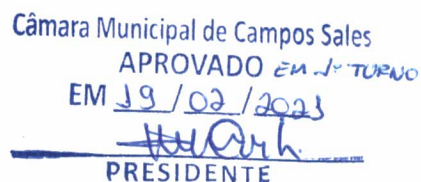 Câmara Municipal de Campos Sales
APROVADO EM 1º TURNO
EM 19 / 02 / 2021
PRESIDENTE